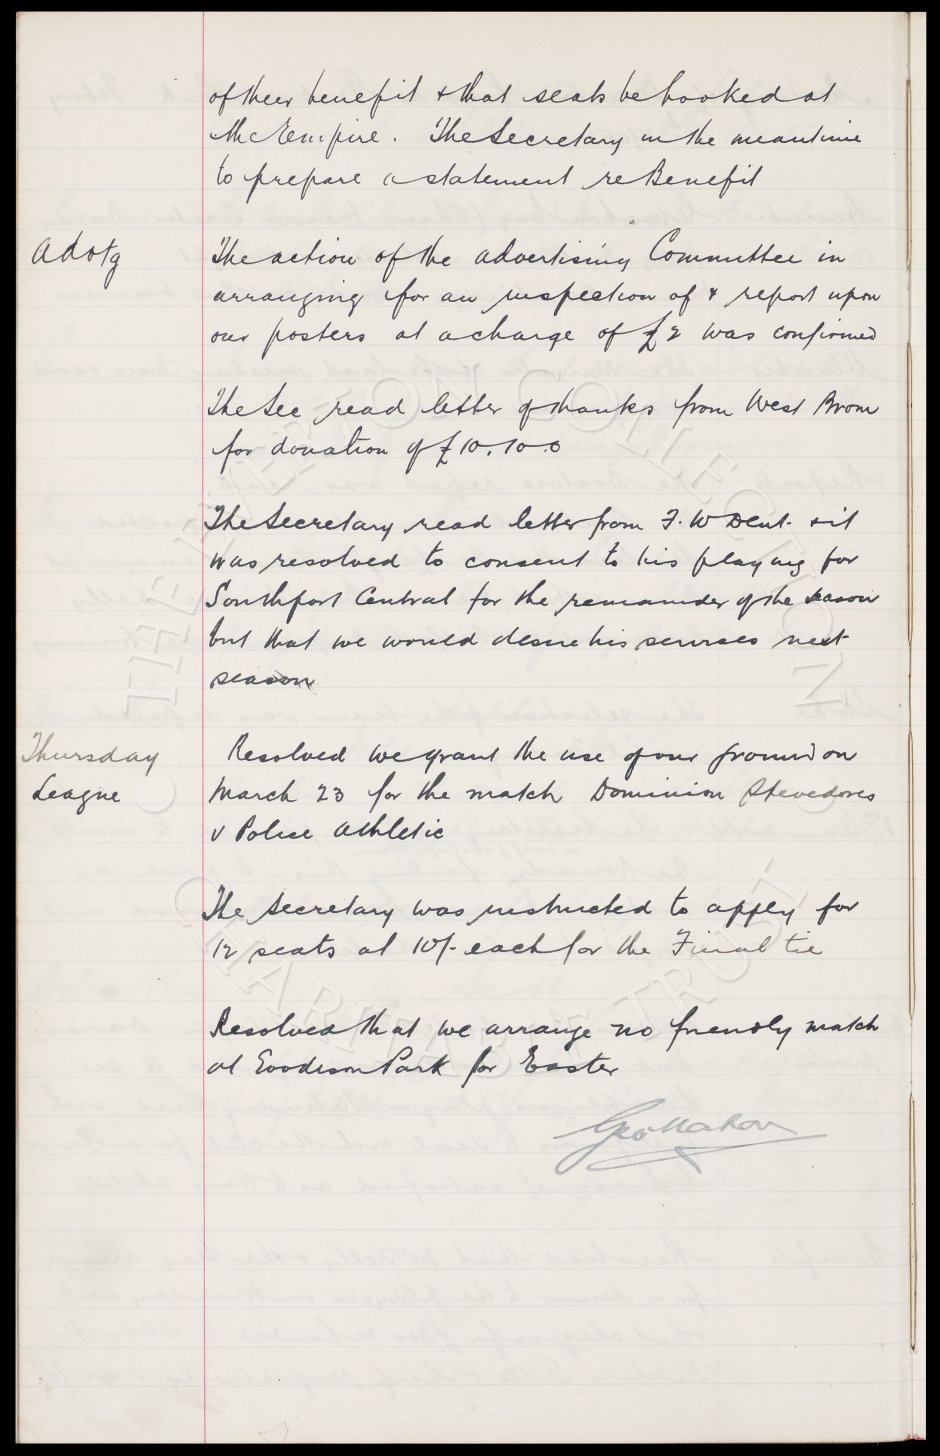 of their benefit & that seats be booked at
the Empire. The Secretary in the meantime
to prepare a statement re Benefit
Advtg
The action of the Advertising Committee in
arranging for an inspection of & report upon
our posters at a charge of £2 was confirmed
The Sec read letter of thanks from West Brom
for donation of £10.10.0
The Secretary read letter from F. W Dent & it
was resolved to consent to his playing for
Southport Central for the remainder of the season
but that we would desire his services next
season
Thursday
League
Resolved we grant the use of our ground on
March 23 for the match Dominion Stevedores
v Police Athletic
The Secretary was instructed to apply for
12 seats at 10/- each for the Final tie
Resolved that we arrange no friendly match
at Goodison Park for Easter
Geo Mahon
THE EVERTON COLLECTION
CHARITABLE TRUST